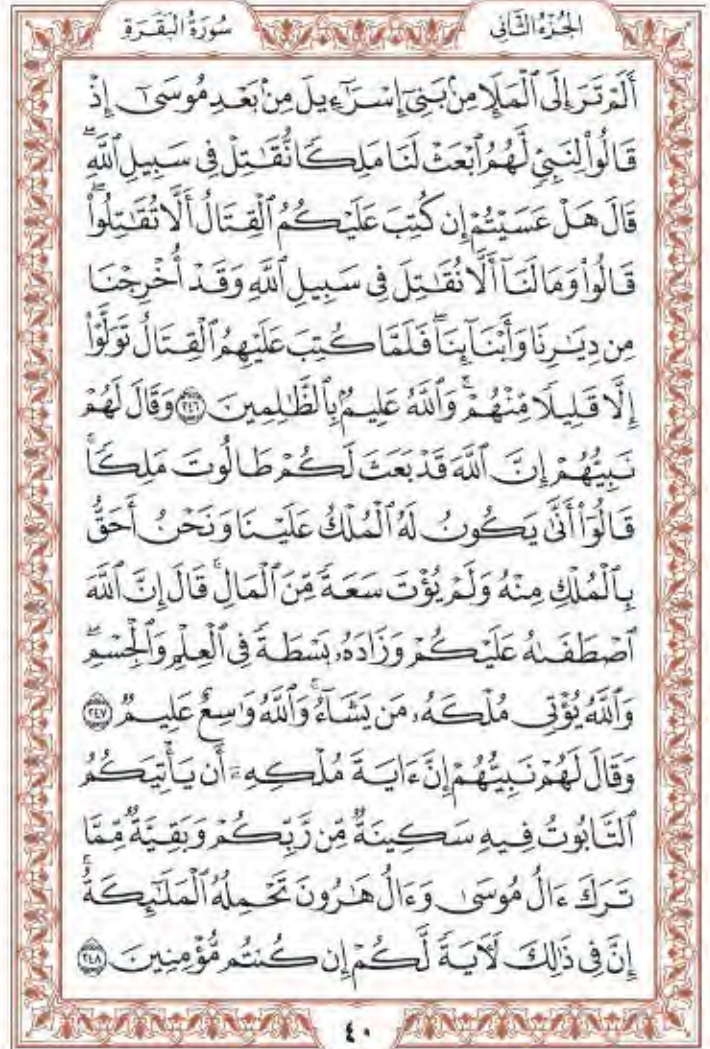 الجُزْءُ الثَّانِي سُورَةُ الْبَقَرَةِ
أَلَمْ تَرَ إِلَى ٱلْمَلَإِ مِنۢ بَنِىٓ إِسْرَٰٓءِيلَ مِنۢ بَعْدِ مُوسَىٰٓ إِذْ
قَالُوا۟ لِنَبِىٍّ لَّهُمُ ٱبْعَثْ لَنَا مَلِكًا نُّقَٰتِلْ فِى سَبِيلِ ٱللَّهِ ۖ
قَالَ هَلْ عَسَيْتُمْ إِن كُتِبَ عَلَيْكُمُ ٱلْقِتَالُ أَلَّا تُقَٰتِلُوا۟ ۖ
قَالُوا۟ وَمَا لَنَآ أَلَّا نُقَٰتِلَ فِى سَبِيلِ ٱللَّهِ وَقَدْ أُخْرِجْنَا
مِن دِيَٰرِنَا وَأَبْنَآئِنَا ۖ فَلَمَّا كُتِبَ عَلَيْهِمُ ٱلْقِتَالُ تَوَلَّوْا۟
إِلَّا قَلِيلًا مِّنْهُمْ ۗ وَٱللَّهُ عَلِيمٌۢ بِٱلظَّٰلِمِينَ ۝٢٤٦ وَقَالَ لَهُمْ
نَبِيُّهُمْ إِنَّ ٱللَّهَ قَدْ بَعَثَ لَكُمْ طَالُوتَ مَلِكًا ۚ
قَالُوٓا۟ أَنَّىٰ يَكُونُ لَهُ ٱلْمُلْكُ عَلَيْنَا وَنَحْنُ أَحَقُّ
بِٱلْمُلْكِ مِنْهُ وَلَمْ يُؤْتَ سَعَةً مِّنَ ٱلْمَالِ ۚ قَالَ إِنَّ ٱللَّهَ
ٱصْطَفَىٰهُ عَلَيْكُمْ وَزَادَهُۥ بَسْطَةً فِى ٱلْعِلْمِ وَٱلْجِسْمِ ۖ
وَٱللَّهُ يُؤْتِى مُلْكَهُۥ مَن يَشَآءُ ۚ وَٱللَّهُ وَٰسِعٌ عَلِيمٌ ۝٢٤٧
وَقَالَ لَهُمْ نَبِيُّهُمْ إِنَّ ءَايَةَ مُلْكِهِۦٓ أَن يَأْتِيَكُمُ
ٱلتَّابُوتُ فِيهِ سَكِينَةٌ مِّن رَّبِّكُمْ وَبَقِيَّةٌ مِّمَّا
تَرَكَ ءَالُ مُوسَىٰ وَءَالُ هَٰرُونَ تَحْمِلُهُ ٱلْمَلَٰٓئِكَةُ ۚ
إِنَّ فِى ذَٰلِكَ لَءَايَةً لَّكُمْ إِن كُنتُم مُّؤْمِنِينَ ۝٢٤٨
٤٠